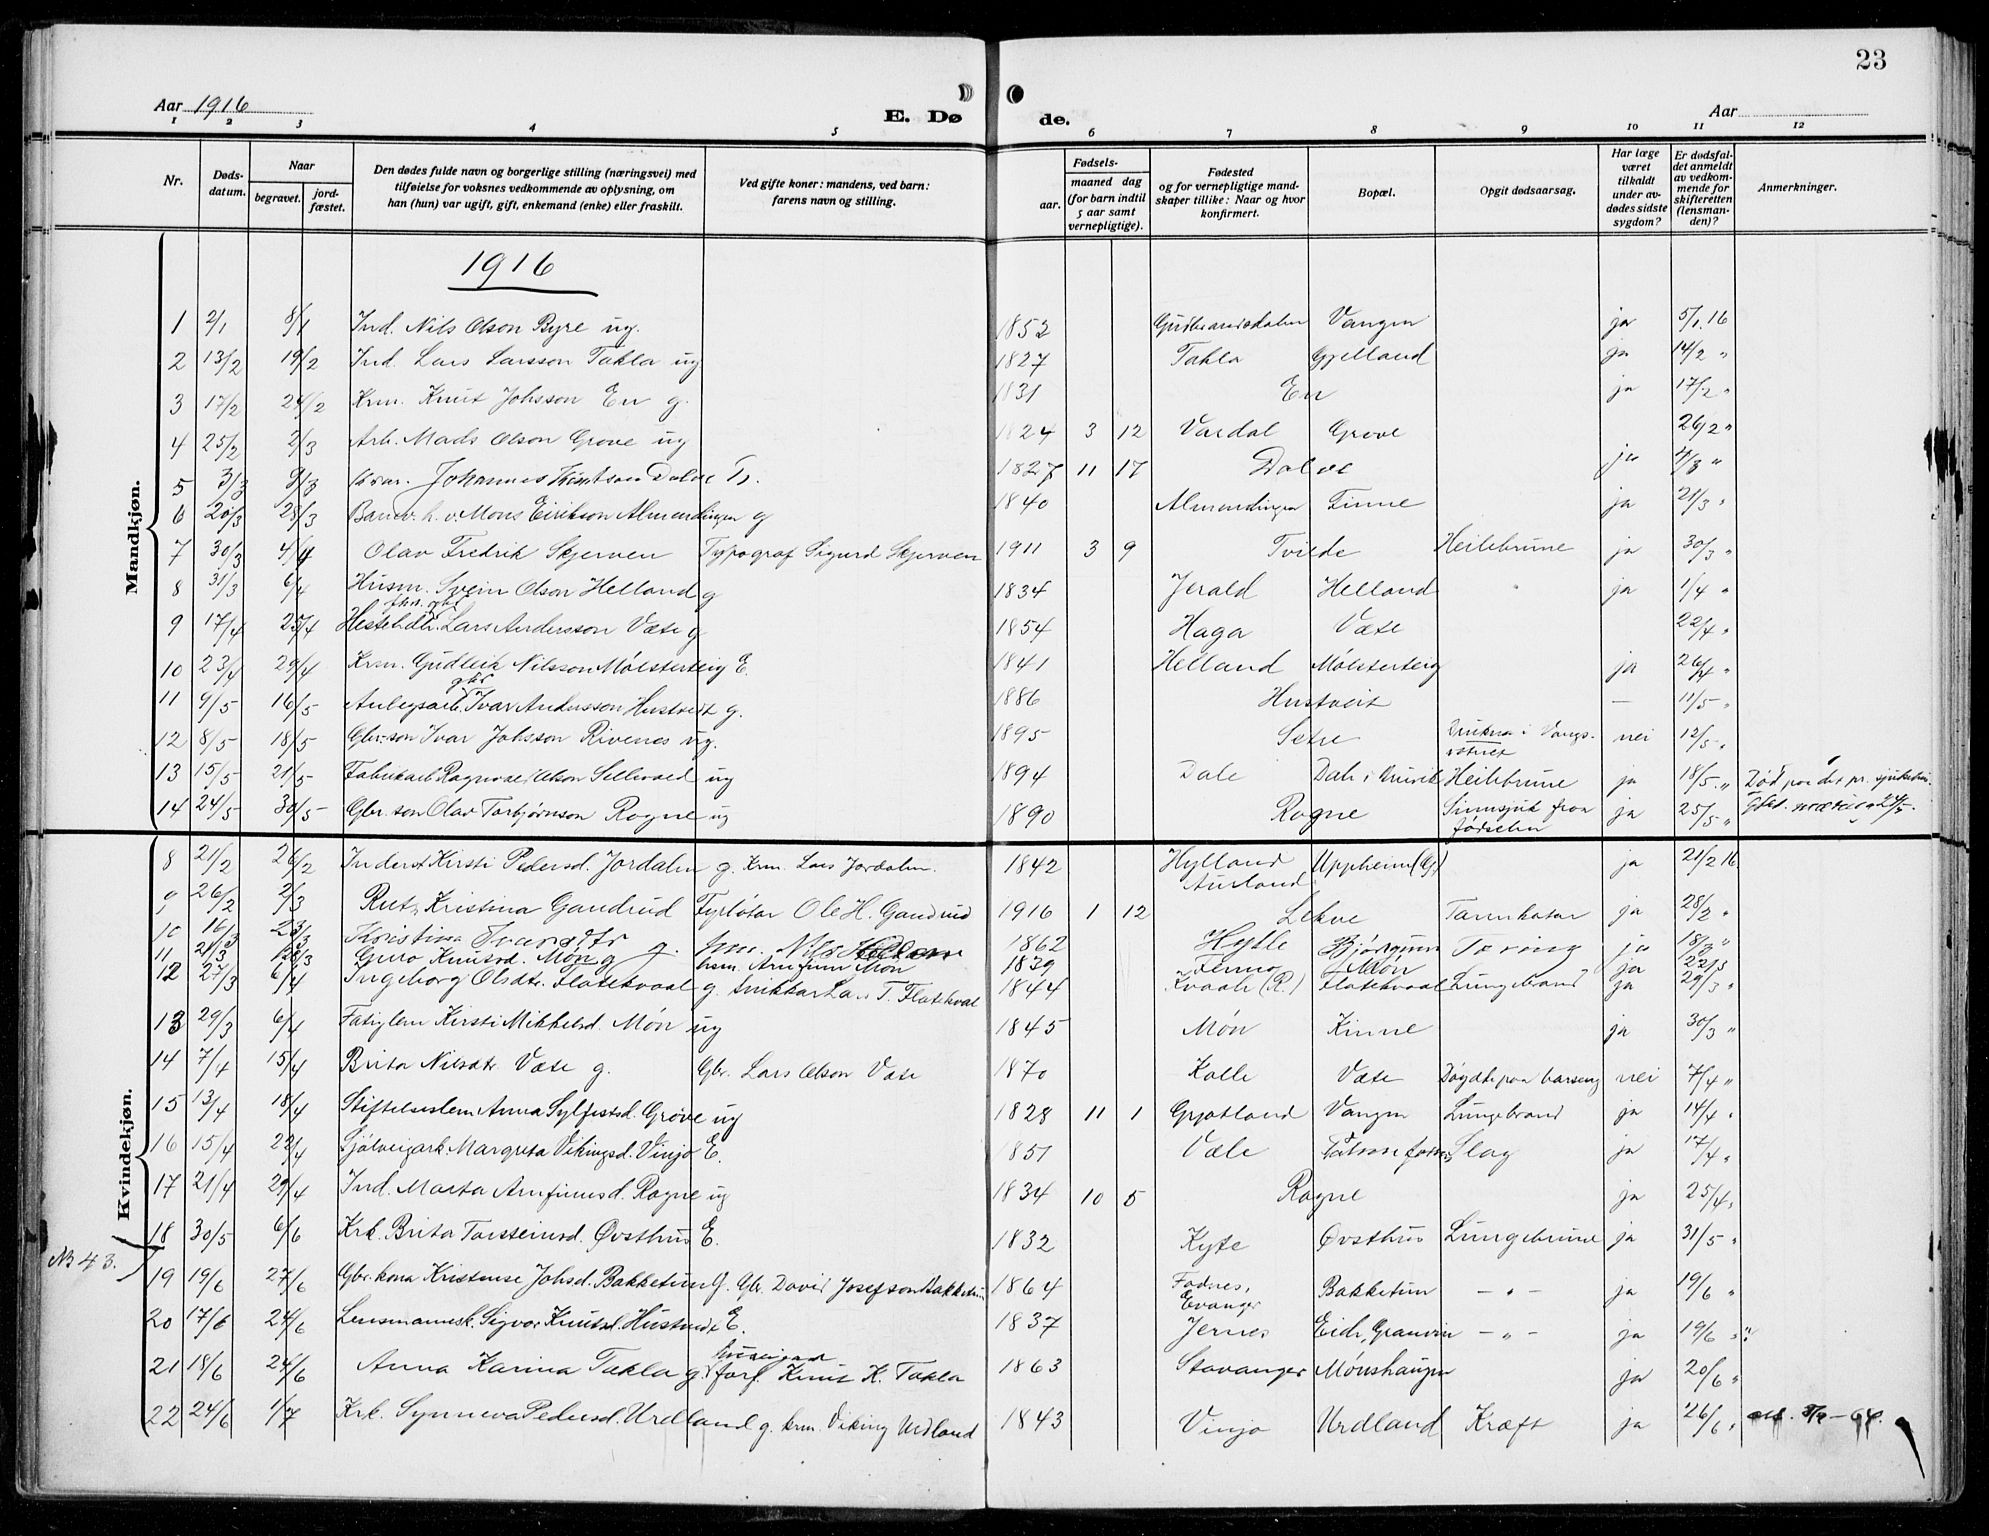 23
Aar 1916
E. Dø
de.
Aar
1 2 3 4 5 6 7 8 9 10 11 12
Nr.
Døds-
datum.
Naar
begravet.
jord-
fæstet.
Den dødes fulde navn og borgerlige stilling (næringsvei) med
tilføielse for voksnes vedkommende av oplysning, om
han (hun) var ugift, gift, enkemand (enke) eller fraskilt.
Ved gifte koner: mandens, ved barn:
farens navn og stilling.
Fødsels-
aar.
maaned dag
(for barn indtil
5 aar samt
vernepligtige).
Fødested
og for vernepligtige mand-
skaper tillike: Naar og hvor
konfirmert.
Bopæl.
Opgit dødsaarsag.
Har læge
været
tilkaldt
under av-
dødes sidste
sygdom?
Er dødsfal-
det anmeldt
av vedkom-
mende for
skifteretten
(lensman-
den)?
Anmerkninger.
Mandkjøn.
1916
1 2/1 8/1 Ind. Nils Olson Byre ug. 1852 Gudbrandsdalen Vangen ja 5/1 16
2 13/2 19/2 Ind. Lars Larsson Takla ug 1827 Takla Gjelland ja 14/2 "
3 17/2 24/2 Krm. Knut Johsson En g. 1831 En ja 17/2 "
4 25/2 2/3 Arb. Mads Olson Grove ug 1824 3 12 Vardal Grove 26/2 "
5 3/3 9/3 Johannes Knutson Dalve 1827 11 17 Dalve ja 4/3 "
6 20/3 28/3 Mons Eirikson Almendingen g 1840 Almendingen Finne ja 21/3 "
7 30/3 4/4 Olav Fredrik Skjerven Typograf Sigurd Skjerven 1911 3 9 Tvilde Heilebrune ja 30/3 "
8 31/3 6/4 Husm. Svein Olson Helland g 1834 Jerald Helland ja 1/4 "
9 17/4 25/4 Hestehdlr. Lars Andersson Væte g 1854 Haga Væte 22/4 "
10 23/4 29/4 Krm. Gudleik Nilsson Mølsterteig E. 1841 Helland Mølsterteig ja 26/4 "
gbr
11 9/5 16/5 Anlegsarb. Ivar Andersson Hustveit g. 1886 Hustveit — 11/5 "
12 8/5 18/5 Gbr.son Ivar Johsson Rivenes ug. 1895 Setre Drukna i Vangs- nei 12/5 "
vatnet
13 15/5 21/5 Fabrikarb. Ragnvald Olson Selheim ug 1894 Dale Dale i Bruvik Heilebrune ja 18/5 " Død paa det pr. sjukehus
14 24/5 30/5 Gbr.son Olav Torbjørnson Rogne ug 1890 Rogne Sinnsjuk fraa ja 25/5 "
fødselen
Kvindekjøn.
8 21/2 26/2 Inderst Kirsti Pedersd. Jordalen g. Krm. Lars Jordalen. 1842 Hylland Uppheim (G.) ja 21/2 16
Aurland
9 26/2 2/3 Rut Kristina Gandrud Fyrbøtar Ole H. Gandrud 1916 1 12 Lekve Tarmkatar ja 28/2 "
10 16/3 23/3 Kristina Ivarsdtr g. Nils 1862 Hylle Bjørgum Tæring ja 18/3 "
11 21/3 28/3 Guro Knutsd. Møn g krm. Arnfinn Møn 1839 Møn ja 22/3
12 27/3 6/4 Ingeborg Olsdtr. Flatekvaal g. Snikkar Lars T. Flatekval 1844 Kvaale (R.) Flatekvaal Lungebrand ja 29/3 "
13 29/3 6/4 Fatiglem Kirsti Mikkelsd. Møn ug 1845 Møn Kinne ja 30/3 "
14 7/4 15/4 Brita Nilsdtr Væte g. Gbr. Lars Olson Væte 1870 Kolle Væte Døydde paa barseng nei 7/4 "
15 13/4 18/4 Stiftelseslem Anna Sylfestsd. Grove ug 1828 11 1 Gjøtland Vangen Lungebrand ja 14/4 "
16 15/4 22/4 Sjølveigark. Margreta Vikingsd. Vinjo E. 1851 Væle Slag ja 17/4 "
17 21/4 29/4 Ind. Marta Arnfinnsd. Rogne ug 1834 10 5 Rogne ja 25/4 "
18 30/5 6/6 Krk. Brita Torsteinsd. Øvsthus E. 1832 Kyte Øvsthus Lungebrune ja 31/5 "
№ 43.
19 19/6 27/6 Gbr.kona Kristense Johsd. Bakketun g. Gbr. David Josefson Bakketun 1864 Fadnes, Bakketun — " — ja 19/6 "
Evanger
20 17/6 24/6 Lensmannsk. Sigvor Knutsd. Hustveit E. 1837 Jernes Eide, Granvin — " — ja 19/6 "
21 18/6 24/6 Anna Karina Takla g. forf. Knut K. Takla 1863 Stavanger Mønshaugen ja 20/6 "
22 24/6 1/7 Krk. Synneva Pedersd. Urdland g. krm. Viking Urdland 1843 Vinjo Urdland Kræft ja 26/6 "